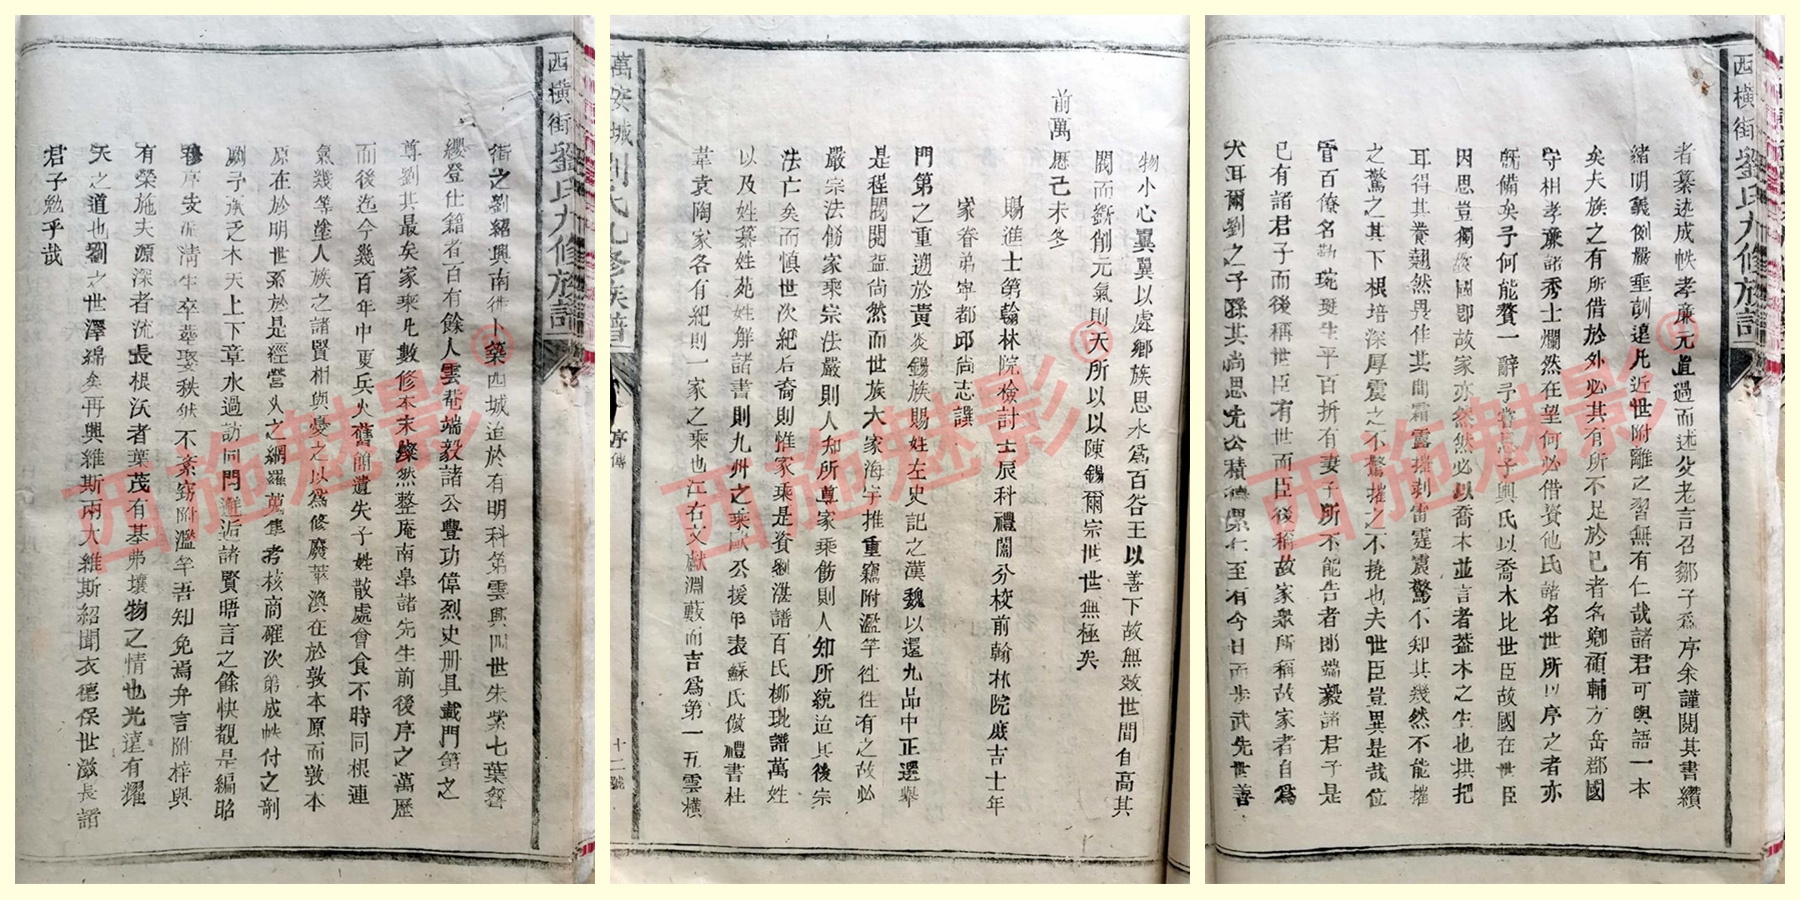 西橫街劉氏九修族譜
者纂述成帙孝廉元直過而述父老言召鄒子為序余謹閱其書纘
緒明義例嚴垂訓遠凡近世附離之習無有仁哉諸君可與語一本
矣夫族之有所借於外必其有所不足於己者名卿碩輔方岳郡國
守相孝廉諸秀士爛然在望何必借資他氏諸名世所以序之者亦
既備矣予何能贅一辭予嘗 子輿氏以喬木比世臣故國在世臣
因思豈獨故國即故家亦然然必以喬木並言者蓋木之生也拱把
耳得其養翹然異作其間霜露摧剝雷霆震驚不知其幾然不能摧
之驚之其下根培深厚震之不驚摧之不撓也夫世臣豈異是哉位
冒百僚名勒琬琰生平百折有妻子所不能告者即端毅諸君子是
已有諸君子而後稱世臣有世而臣後稱故家衆所稱故家者自為
大耳爾劉之子孫其尚思先公積德累仁至有今日而步武先世善
萬安城劉氏九修族譜
序傳
十二號
物小心翼翼以處鄉族思水為百谷王以善下故無效世間自高其
閥而斲削元氣則天所以以陳錫爾宗世世無極矣
前萬曆己未冬
賜進士第翰林院檢討壬辰科禮闈分校前翰林院庶吉士年
家眷弟寧都邱尚志譔
門第之重遡於黃炎錫族賜姓左史記之漢魏以還九品中正選舉
是程閥閱益尚然而世族大家海宇推重竊附濫竽往往有之故必
嚴宗法飭家乘宗法嚴則人知所尊家乘飭則人知所統迨其後宗
法亡矣而慎世次紀后裔則惟家乘是資劉湛譜百氏柳玭譜萬姓
以及姓纂姓苑姓解諸書則九州之乘歐公援年表蘇氏倣禮書杜
韋袁陶家各有紀則一家之乘也江右文獻淵藪而吉為第一五雲橫
西橫街劉氏九修族譜
街之劉紹興南徙卜築西城迨於有明科第雲興四世朱紫七葉簪
纓登仕籍者百有餘人雲菴端毅諸公豐功偉烈史册具載門第之
尊劉其最矣家乘凡數修本末燦然整庵南臯諸先生前後序之萬歷
而後迄今幾百年中更兵火舊簡遺失子姓散處會食不時同根連
氣幾等塗人族之諸賢相與憂之以為修廢萃渙在於敦本原而敦本
原在於明世系於是經營 之網羅蒐集考核商確次第成帙付之剞
劂予承乏木天上下章水過訪同門邂逅諸賢晤言之餘快覩是編昭
穆序支派清生卒葬娶秩然不紊竊附濫竽吾知免焉弁言附梓與
有榮施夫源深者流長根沃者葉茂有基弗壞物之情也光遠有耀
天之道也劉之世澤綿矣再興維斯兩大維斯紹聞衣德保世滋長諸
君子勉乎哉
西施魅影®
西施魅影®
西施魅影®